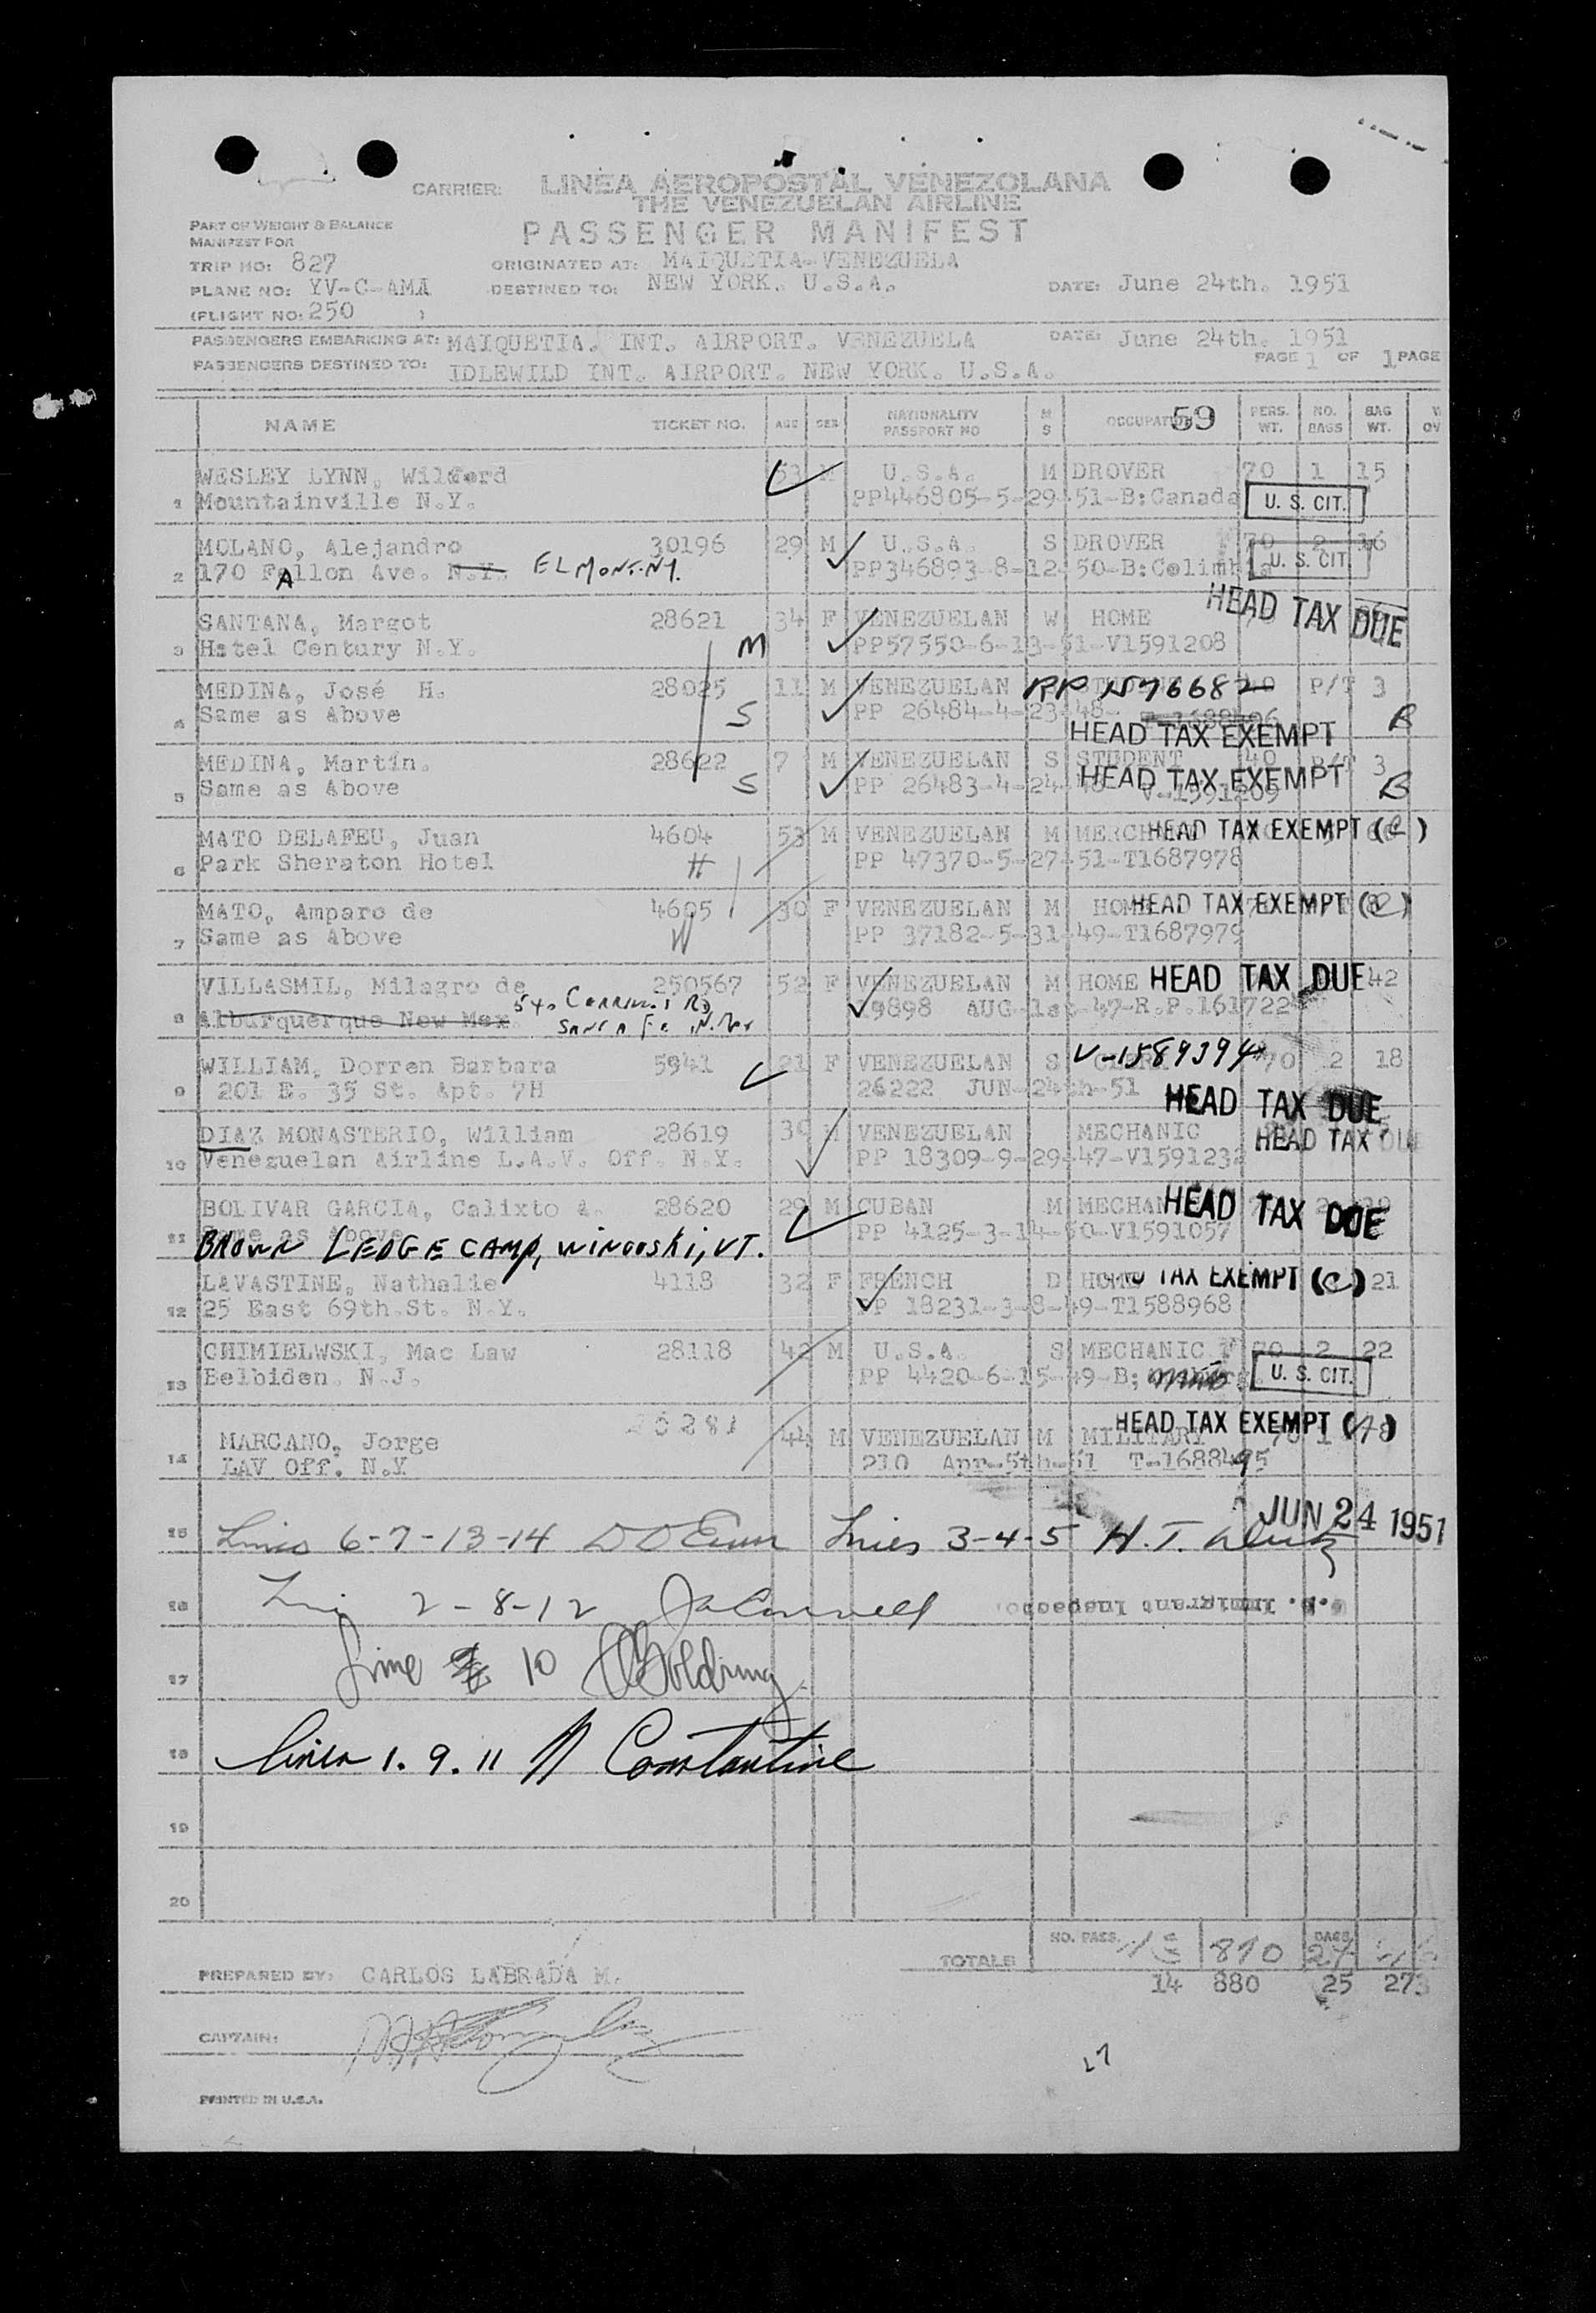 CARRIER: LINEA AEROPOSTAL VENEZOLANA
THE VENEZUELAN AIRLINE
PART OF WEIGHT & BALANCE
MANIFEST FOR
PASSENGER MANIFEST
TRIP NO: 827 ORIGINATED AT: MAIQUETIA-VENEZUELA
PLANE NO: YV-C-AMA DESTINED TO: NEW YORK. U.S.A. DATE: June 24th. 1951
(FLIGHT NO: 250 )
PASSENGERS EMBARKING AT: MAIQUETIA. INT. AIRPORT. VENEZUELA DATE: June 24th. 1951
PAGE 1 OF 1 PAGE
PASSENGERS DESTINED TO: IDLEWILD INT. AIRPORT. NEW YORK. U.S.A.
NAME TICKET NO. AGE SEX NATIONALITY PASSPORT NO M S OCCUPATION 59 PERS. WT. NO. BAGS BAG WT.
WESLEY LYNN, Wilford 53 M U.S.A. M DROVER 70 1 15
1 Mountainville N.Y. PP446805-5-29-51-B:Canada U. S. CIT.
MOLANO, Alejandro 30196 29 M U.S.A. S DROVER 70 2 16
2 170 Fallon Ave. N.Y. ELMONT. NY. PP346893-8-12-50-B:Colimbia U. S. CIT.
SANTANA, Margot 28621 34 F VENEZUELAN W HOME HEAD TAX DUE
3 Hotel Century N.Y. M PP57550-6-13-51-V1591208
MEDINA, José H. 28025 11 M VENEZUELAN RP N76682 P/T 3
4 Same as Above S PP 26484-4-23-48- HEAD TAX EXEMPT B
MEDINA, Martin. 28622 7 M VENEZUELAN S STUDENT 40 P/T 3
5 Same as Above S PP 26483-4-24-48 V-1591209 HEAD TAX EXEMPT B
MATO DELAFEU, Juan 4604 53 M VENEZUELAN M HEAD TAX EXEMPT (C)
6 Park Sheraton Hotel H PP 47370-5-27-51-T1687978
MATO, Amparo de 4605 30 F VENEZUELAN M HOME HEAD TAX EXEMPT (C)
7 Same as Above W PP 37182-5-31-49-T1687979
VILLASMIL, Milagro de 250567 52 F VENEZUELAN M HOME HEAD TAX DUE 42
8 Alburquerque New Mex. 540 Cerrillos Rd Santa Fe N. Mex 19898 AUG-1st-47-R.P.161722
WILLIAM, Dorren Barbara 5941 21 F VENEZUELAN S V-1589394 70 2 18
9 201 E. 35 St. Apt. 7H 26222 JUN-24th-51 HEAD TAX DUE
DIAZ MONASTERIO, William 28619 30 M VENEZUELAN MECHANIC HEAD TAX DUE
10 Venezuelan Airline L.A.V. Off. N.Y. PP 18309-9-29-47-V1591232
BOLIVAR GARCIA, Calixto A. 28620 29 M CUBAN M MECHANIC HEAD TAX DUE
11 Same as Above PP 4125-3-14-50-V1591057
BROWN LEDGE CAMP, WINOOSKI, VT.
LAVASTINE, Nathalie 4118 32 F FRENCH D HOME TAX EXEMPT (C) 21
12 25 East 69th.St. N.Y. PP 18231-3-8-49-T1588968
CHIMIELWSKI, Mac Law 28118 42 M U.S.A. S MECHANIC 70 2 22
13 Belbiden. N.J. PP 4420-6-15-49-B; U. S. CIT.
MARCANO, Jorge 44 M VENEZUELAN M MILITARY HEAD TAX EXEMPT
14 LAV Off. N.Y 210 Apr-5th-51 T-1688495
JUN 24 1951
15 Lines 6-7-13-14 Lines 3-4-5 H. T.
16 2-8-12 U.S. Immigrant Inspector
17 Line 10 Golding
18 lines 1. 9. 11 N Constantine
19
20
TOTALS NO. PASS. 13 810 BAGS 24
14 880 25 273
PREPARED BY: CARLOS LABRADA M.
CAPTAIN:
27
PRINTED IN U.S.A.